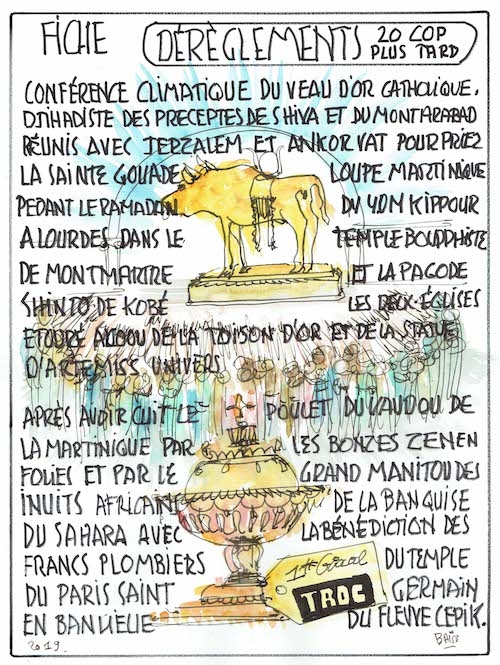 FICHE
DÉRÈGLEMENTS 20 COP PLUS TARD
CONFÉRENCE CLIMATIQUE DU VEAU D'OR CATHOLIQUE,
DJIHADISTE DES PRECEPTES DE SHIVA ET DU MONT ARABAD
RÉUNIS AVEC JERZALEM ET ANKOR VAT POUR PRIEZ
LA SAINTE GOUADE LOUPE MARTINIQUE
PEDANT LE RAMADAN DU YOM KIPPOUR
A LOURDES DANS LE TEMPLE BOUDDHISTE
DE MONTMARTRE ET LA PAGODE
SHINTO DE KOBÉ LES DEUX ÉGLISES
ET DU RÉ ADDOU DE LA TOISON D'OR ET DE LA STATUE
D'ARTEMISS UNIVERS
APRÈS AVOIR CUIT LE POULET DU VAUDOU DE
LA MARTINIQUE PAR LES BONZES ZEN EN
FOLIES ET PAR LE GRAND MANITOU DES
INUITS AFRICAIN DE LA BANQUISE
DU SAHARA AVEC LA BÉNÉDICTION DES
FRANCS PLOMBIERS DU TEMPLE
DU PARIS SAINT GERMAIN
EN BANLIEUE DU FLEUVE CEPIK.
1 Graal
TROC
2019